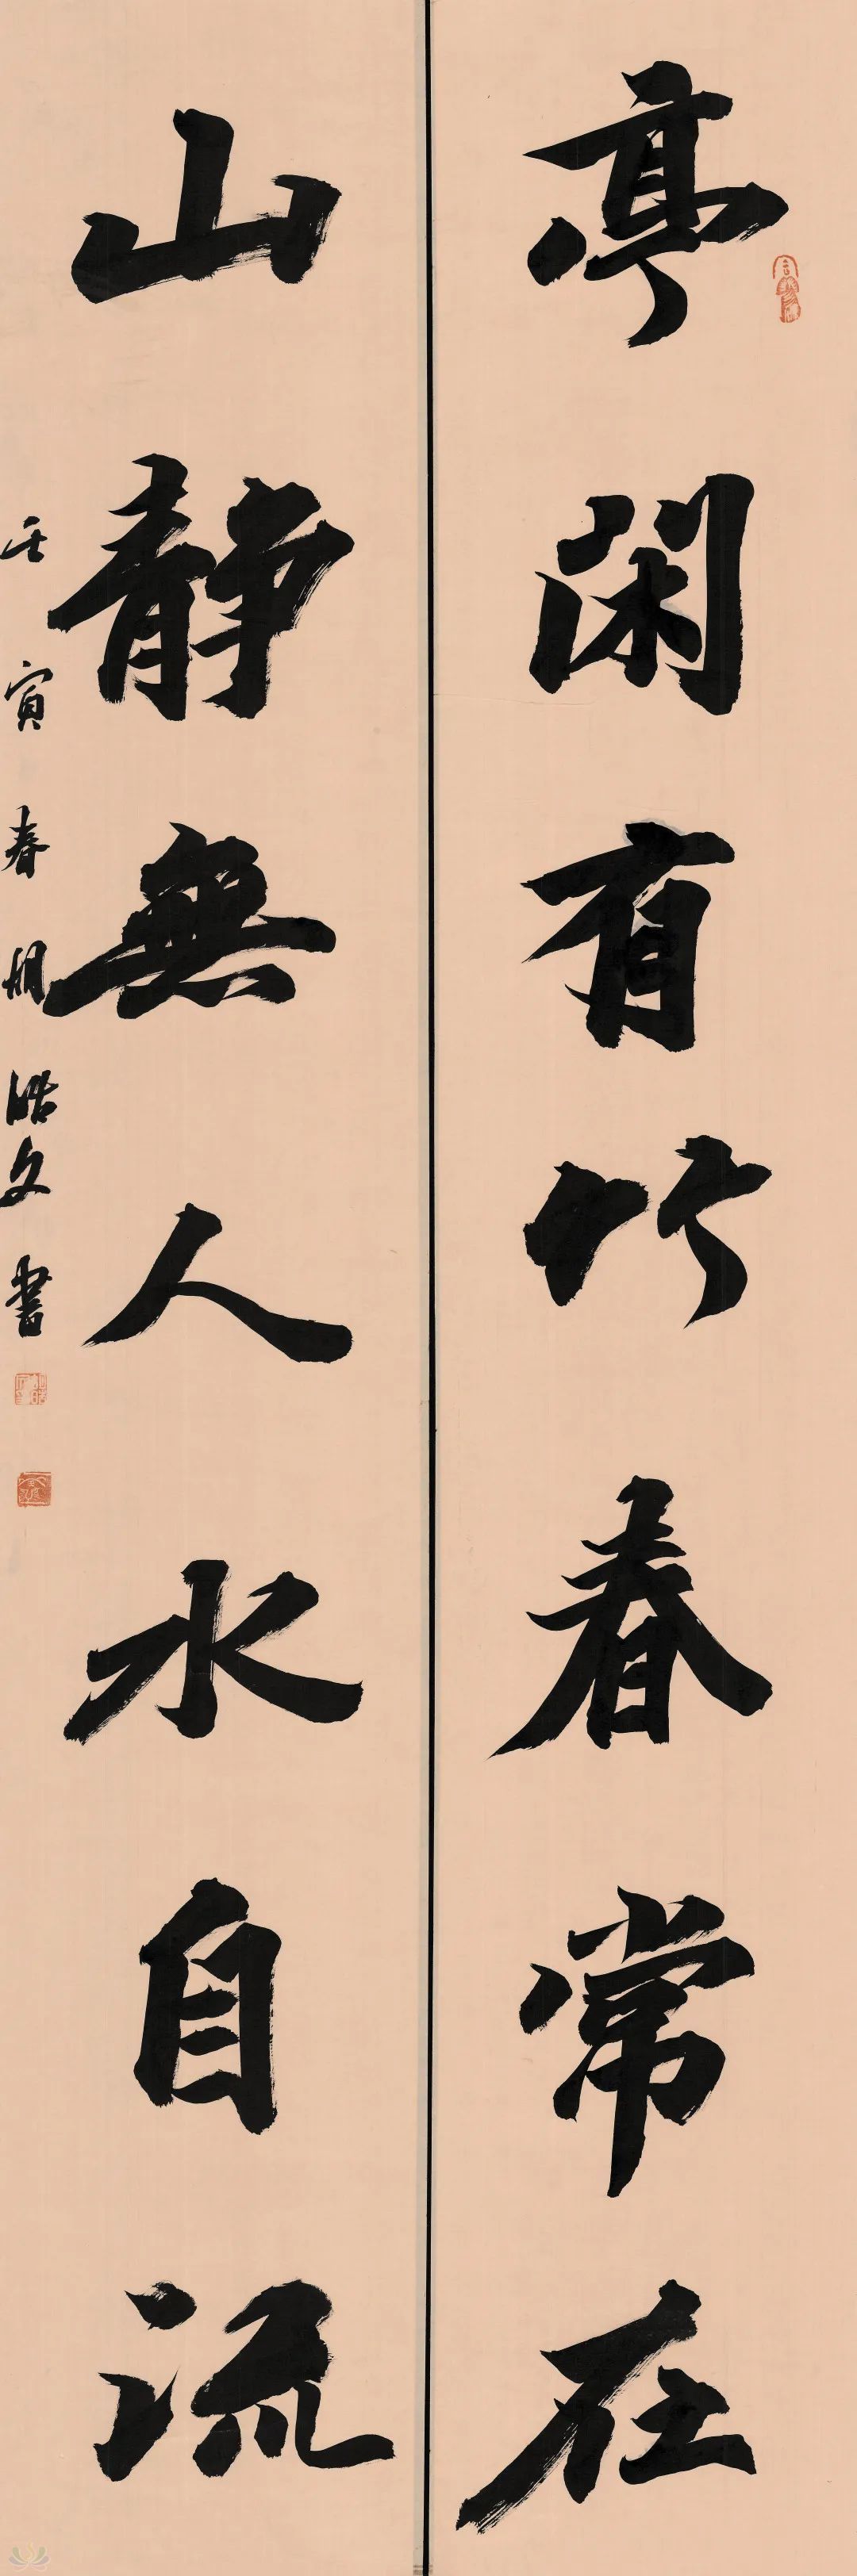 亭閑有竹春常在
山靜無人水自流
壬寅春月浩文書